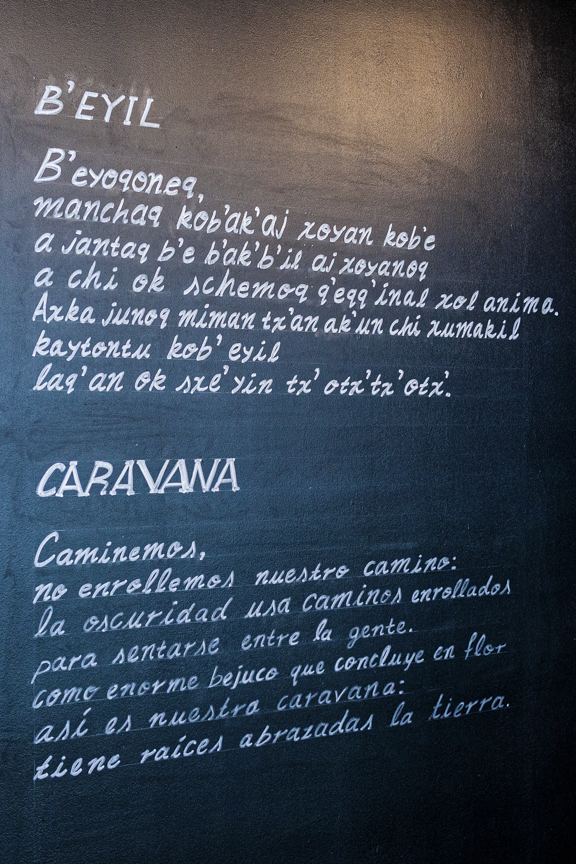 B'EYIL
B'eyoqoneq,
manchaq kob'ak'aj xoyan kob'e
a jantaq b'e b'ak'b'il aj xoyanoq
a chi ok schemoq q'eqq'inal xol anima.
Axka junoq miman tx'an ak'un chi xumakil
kaytontu kob'eyil
laq'an ok sxe'yin tx'otx'tx'otx'.
CARAVANA
Caminemos,
no enrollemos nuestro camino:
la oscuridad usa caminos enrollados
para sentarse entre la gente.
como enorme bejuco que concluye en flor
así es nuestra caravana:
tiene raíces abrazadas la tierra.